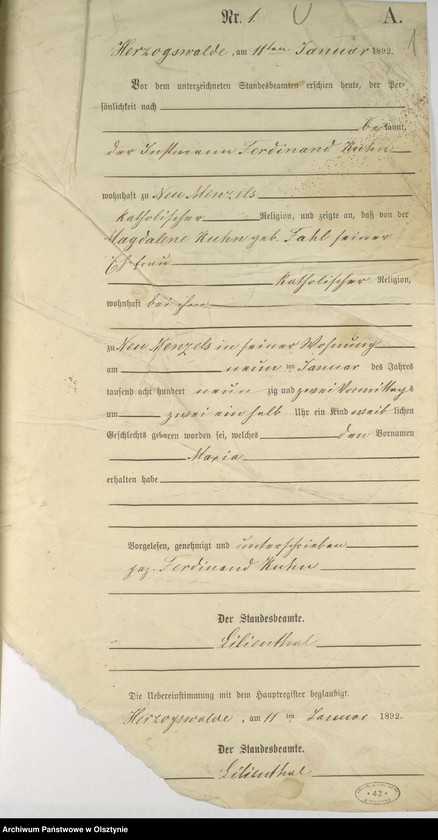 Nr. 1
A.
1
Herzogswalde, am 11ten Januar 1892.
Vor dem unterzeichneten Standesbeamten erschien heute, der Per-
sönlichkeit nach
bekannt,
der Instmann Ferdinand Kuhn
wohnhaft zu Neu Menzels
katholischer Religion, und zeigte an, daß von der
Magdalene Kuhn geb. Fahl seiner
Ehefrau
katholischer Religion,
wohnhaft bei ihm
zu Neu Menzels in seiner Wohnung
am neun ten Januar des Jahres
tausend acht hundert neun zig und zwei Vormittags
um zwei ein halb Uhr ein Kind weib lichen
Geschlechts geboren worden sei, welches den Vornamen
Maria
erhalten habe
Vorgelesen, genehmigt und unterschrieben
gez. Ferdinand Kuhn
Der Standesbeamte.
Lilienthal
Die Uebereinstimmung mit dem Hauptregister beglaubigt.
Herzogswalde, am 11 ten Januar 1892.
Der Standesbeamte.
Lilienthal
42
Archiwum Państwowe w Olsztynie